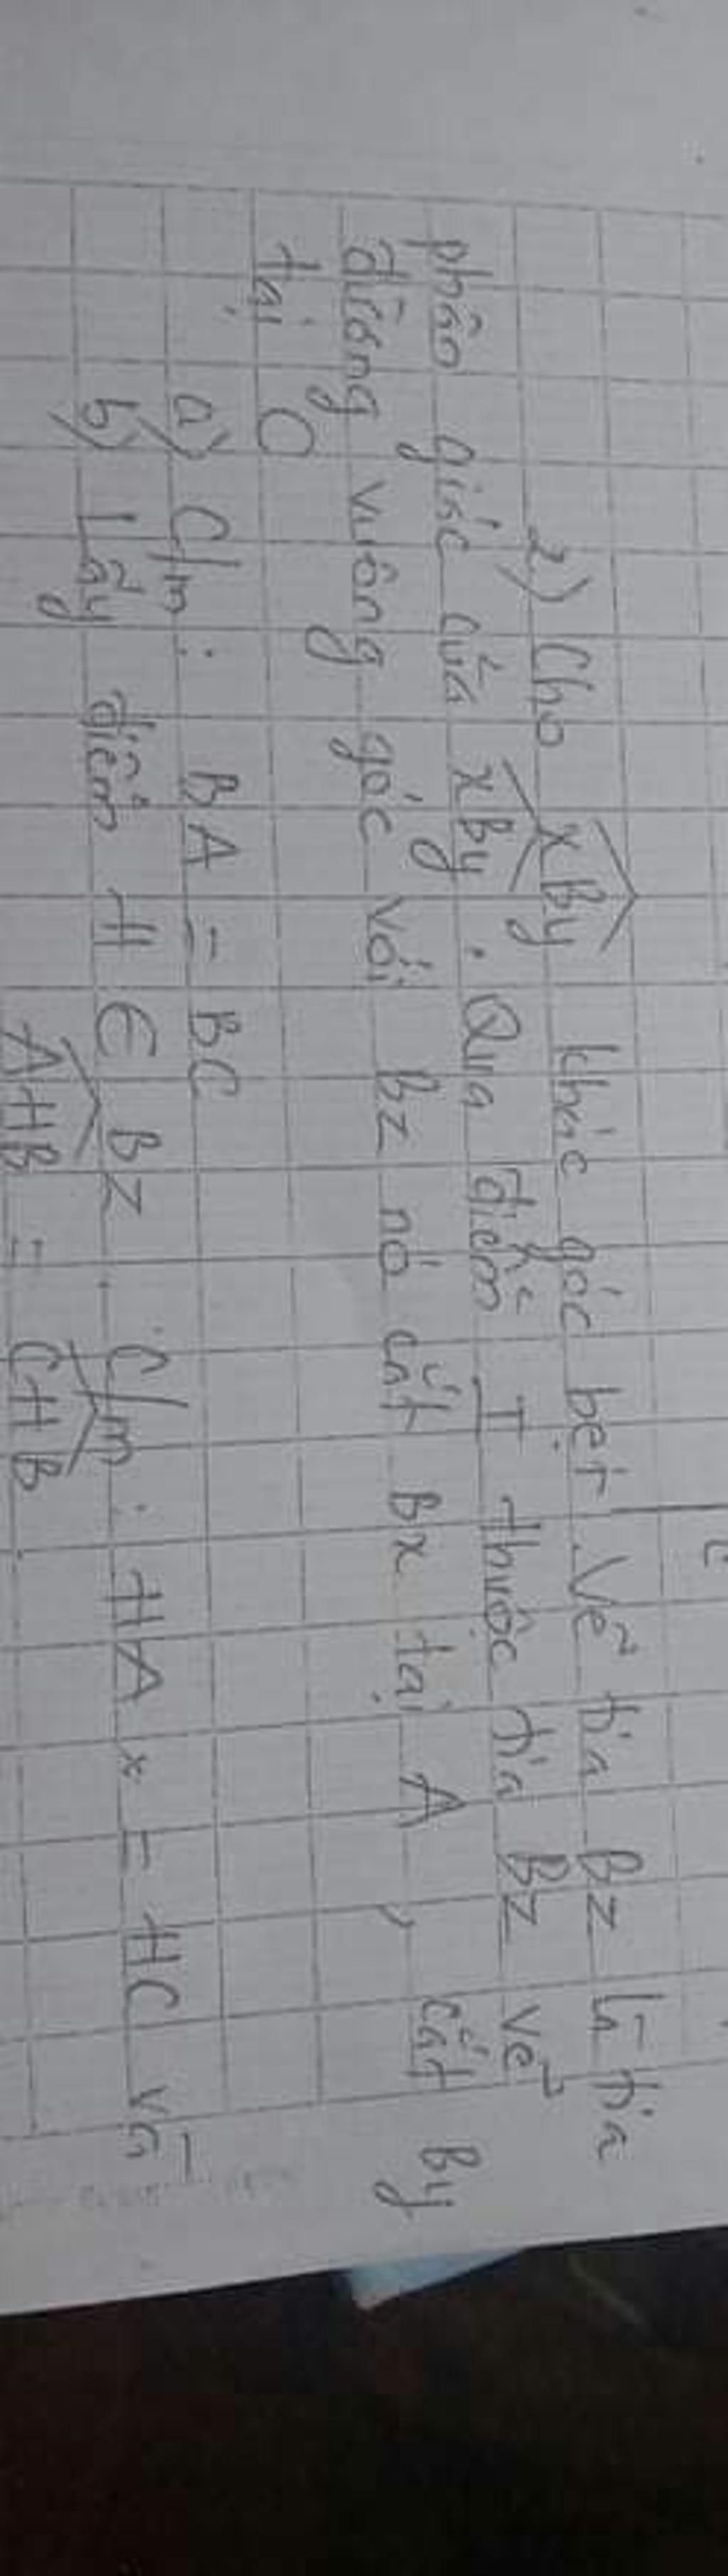 2) Cho xBy khác góc bẹt Vẽ tia Bz là tia
phân giác của xBy. Qua điểm I thuộc tia Bz vẽ
đường vuông góc với Bz nó cắt Bx tại A, cắt By
tại C
a) C/m: BA = BC
b) Lấy điểm H ∈ BZ. C/m: HA = HC và
AHB = CHB